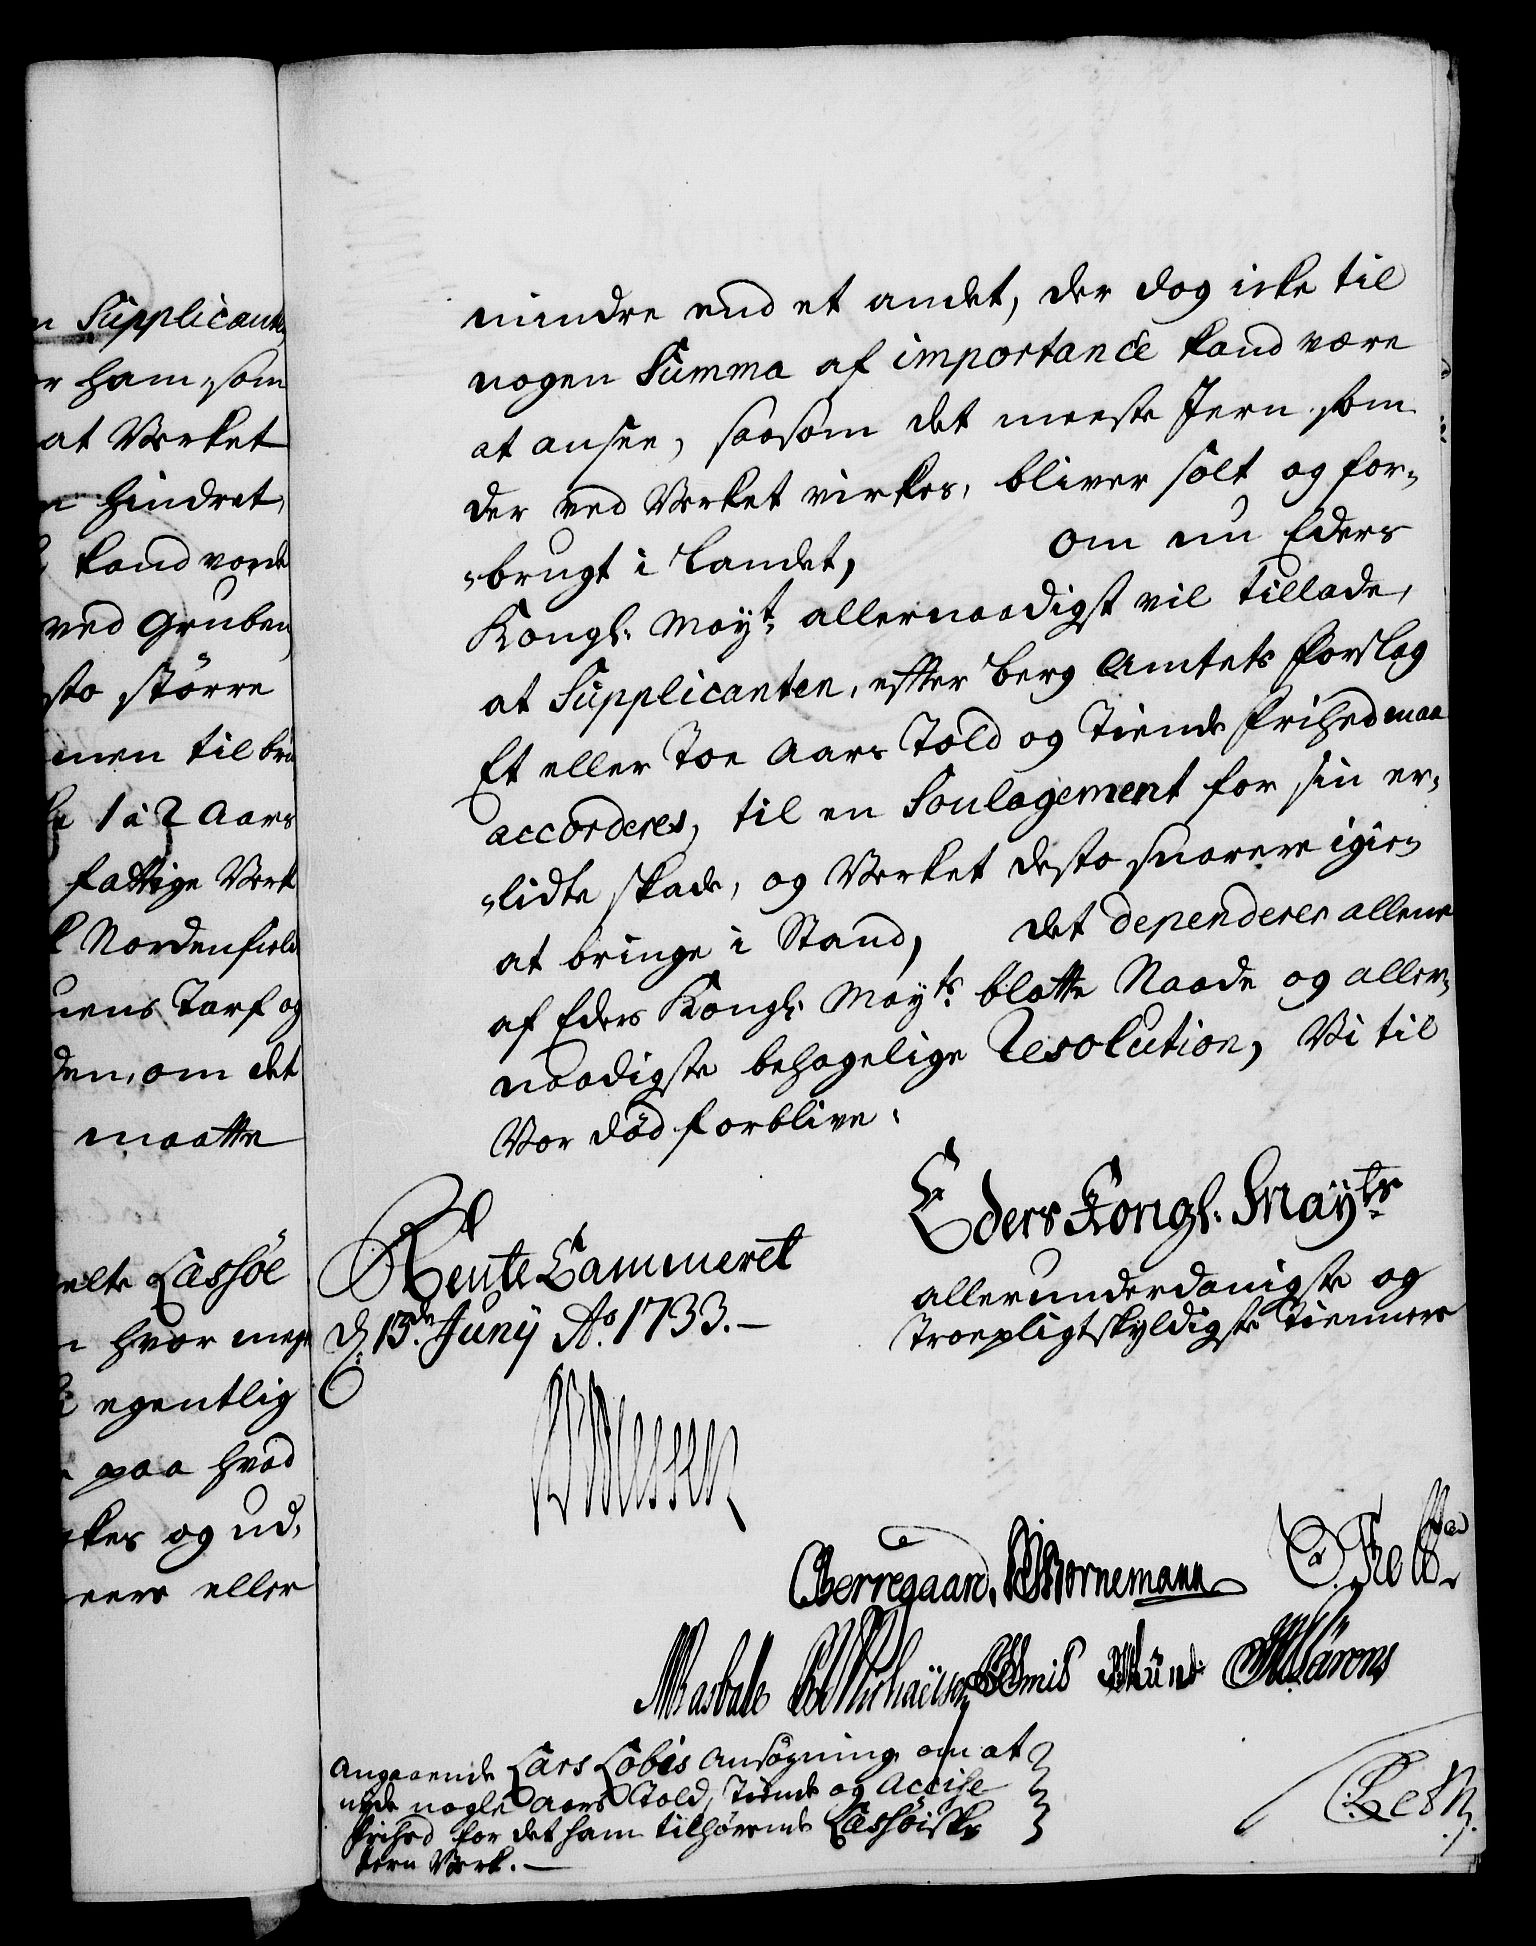 n Supplicant
r ham, som
at Verket
n hindret,
kand vorde
ved Gruben
sto større
men til bra
1 à 2 Aars
fattige Verk
Nordenfield
nens Tarf og
den, om det
maatte
elte Lassøe
hvor meget
egentlig
paa hvad
kes og ud,
eers eller
mindre end et andet, der dog icke til
nogen Summa af importance kand være
at ansee, saasom det meeste Jern som
der ved Verket virkes, bliver solt og for-
-brugt i Landet, om nu Eders
Kongl: Mayt: allernaadigst vil tillade,
at Supplicanten, efter Berg Amtets forslag
Et eller Toe Aars Told og Tiende frihed maa
accorderes, til en Soulagement for sin er-
-lidte skade, og Verket desto snarere igien
at bringe i Stand, det dependerer allene
af Eders Kongl: Mayts blotte Naade og aller-
naadigste behagelige Resolution, Vi til
Vor død forblive:
Eders Kongl. Mayts
allerunderdanigste og
Troepligtskyldigste Tiennere
Rente Cammeret
d. 13de Junij Ao. 1733.
Benzon
CBerregaard. Bornemann
Rasbech Michaelsen Smid Munk
Angaaende Lars Lobes Ansøgning om at
nyde nogle Aars Told, Tiende og Accise
frihed for det ham tilhørende Lassøiske
Jern Verk.